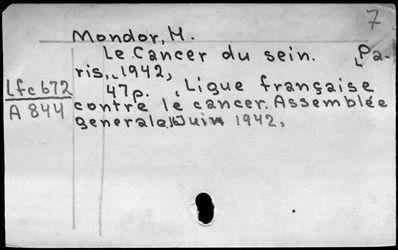 7
Mondor, M.
Le Cancer du sein. Pa-
ris, 1942,
47p. Ligue française
contre le cancer. Assemblée
generale Juin 1942,
Lfc b72
A 844